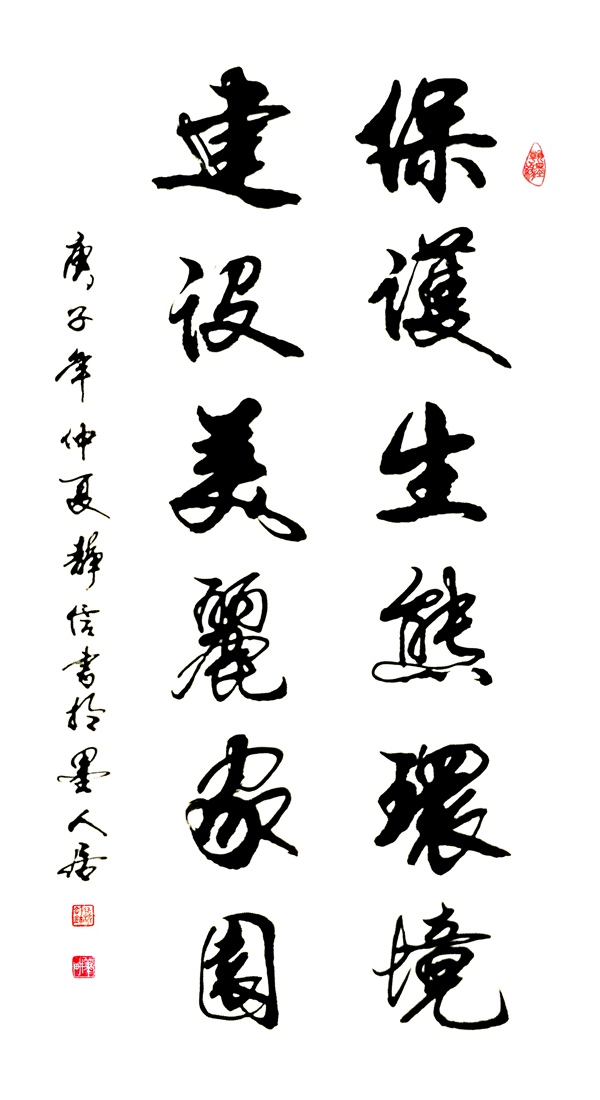 保護生態環境
建設美麗家園
庚子年仲夏靜信書於墨人居